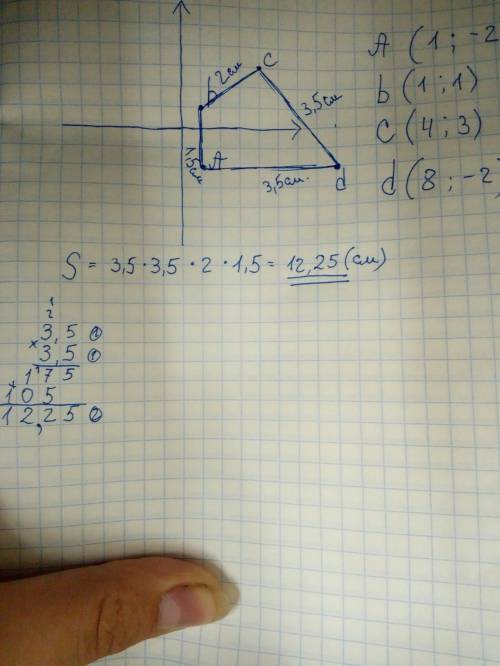 A (1 ; -2
b (1 ; 1)
C (4 ; 3)
d (8 ; -2)
b
2см
C
3,5см
1,5см
A
3,5см.
d
S = 3,5 · 3,5 · 2 · 1,5 = 12,25 (см)
1
2
3,5 ①
× 3,5 ①
1 1 7 5
1 0 5
1 2,2 5 ②